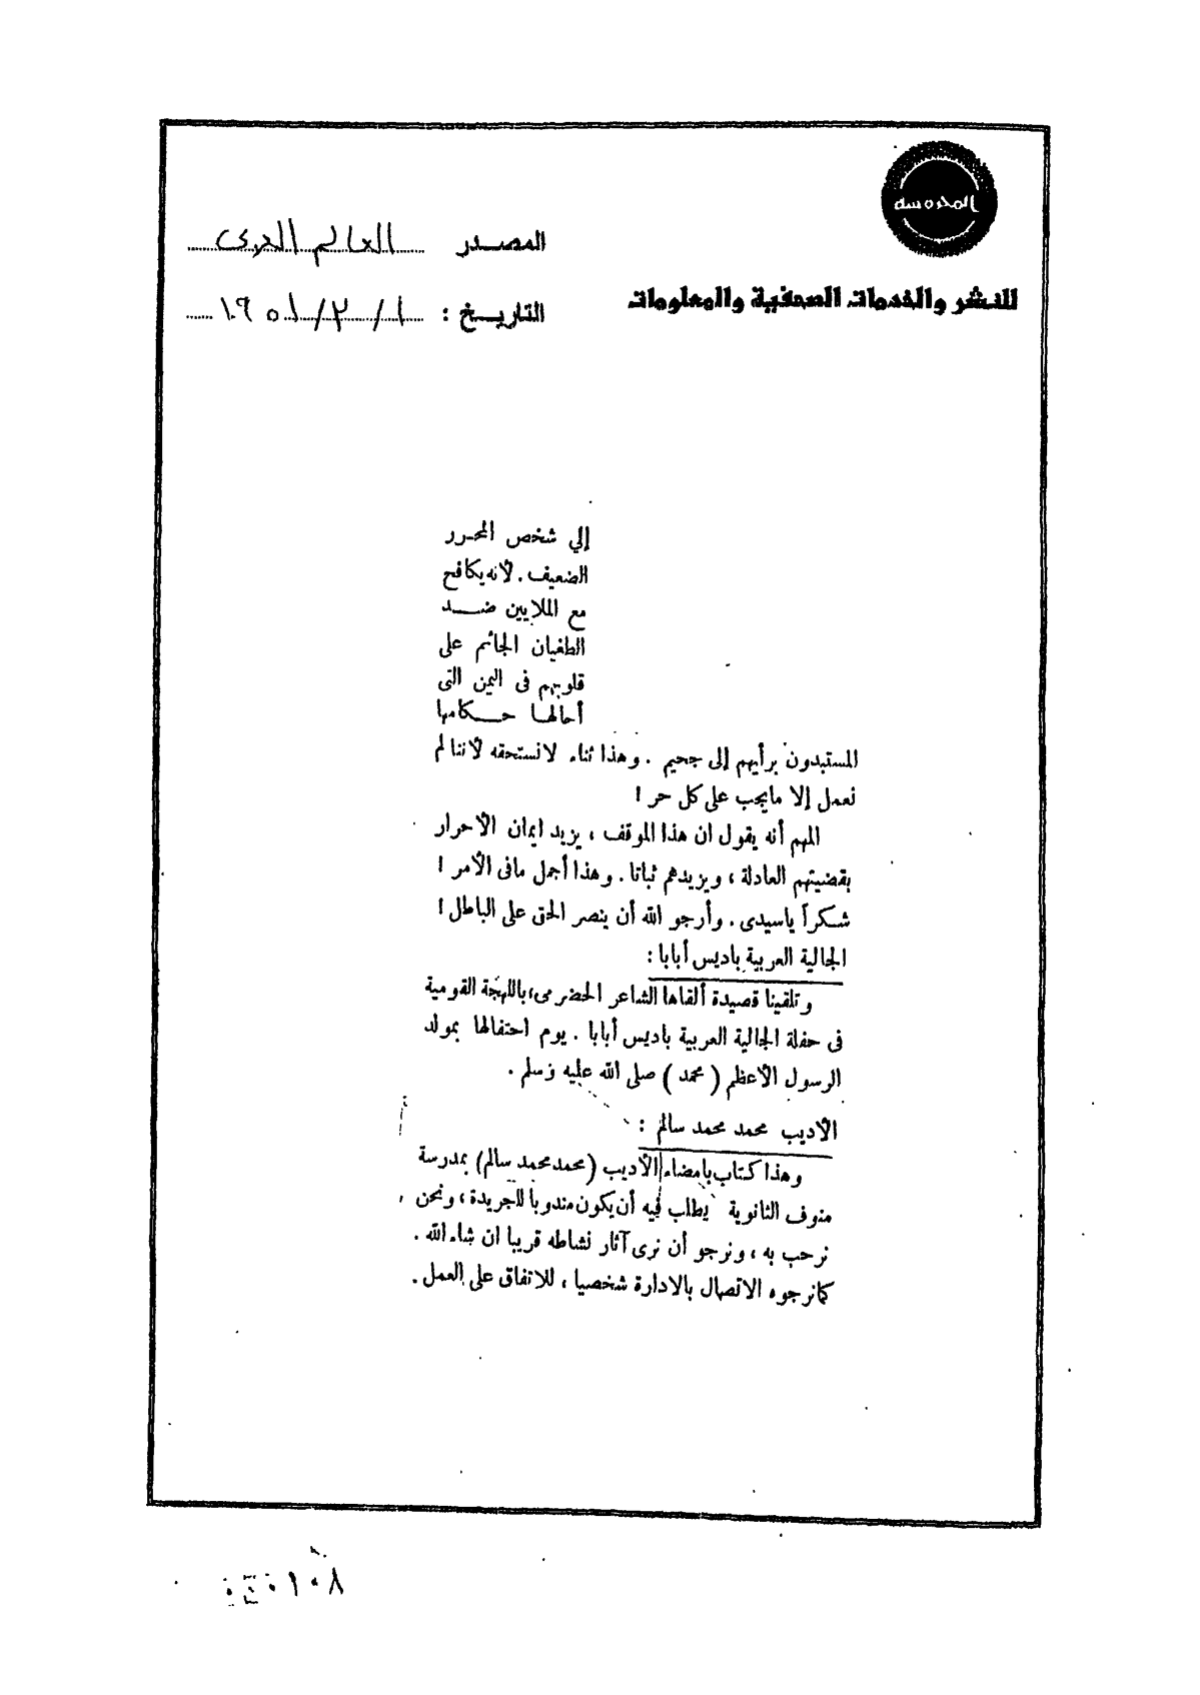 المحروسه
للنشر والخدمات الصحفية والمعلومات
المصدر العالم العربى
التاريخ : ١ / ٢ / ١٩٥١
إلي شخص المحرر
الضعيف . لأنه يكافح
مع الملايين ضد
الطغيان الجاثم على
قلوبهم فى اليمن التى
أحالها حكامها
المستبدون برأيهم إلى جحيم . وهذا ثناء لا نستحقه لأننا لم
نعمل إلا ما يجب على كل حر !
المهم أنه يقول ان هذا الموقف ، يزيد ايمان الأحرار
بقضيتهم العادلة ، ويزيدهم ثباتا . وهذا أجمل مافى الأمر !
شكراً ياسيدى . وأرجو الله أن ينصر الحق على الباطل !
الجالية العربية باديس أبابا :
وتلقينا قصيدة ألقاها الشاعر الحضرمى ، باللهجة القومية
فى حفلة الجالية العربية باديس أبابا . يوم احتفالها بمولد
الرسول الأعظم ( محمد ) صلى الله عليه وسلم .
الأديب محمد محمد سالم :
وهذا كتاب بامضاء الأديب ( محمد محمد سالم ) بمدرسة
منوف الثانوية يطلب فيه أن يكون مندوبا للجريدة ، ونحن
نرحب به ، ونرجو أن نرى آثار نشاطه قريبا ان شاء الله .
كما نرجوه الاتصال بالادارة شخصيا ، للاتفاق على العمل .